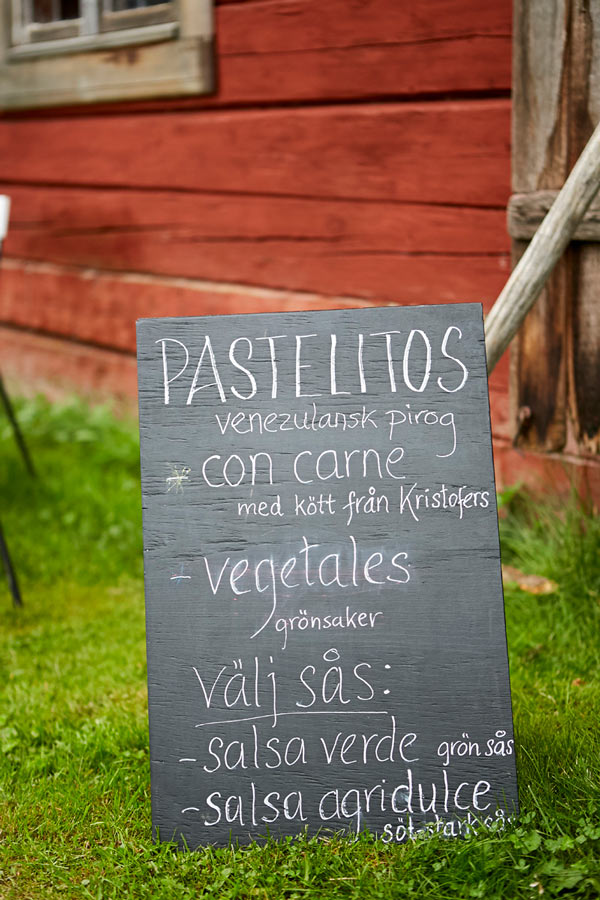 PASTELITOS
venezulansk pirog
* con carne
med kött från Kristofers
- vegetales
grönsaker
välj sås:
- salsa verde grön sås
- salsa agridulce
söt-stark sås